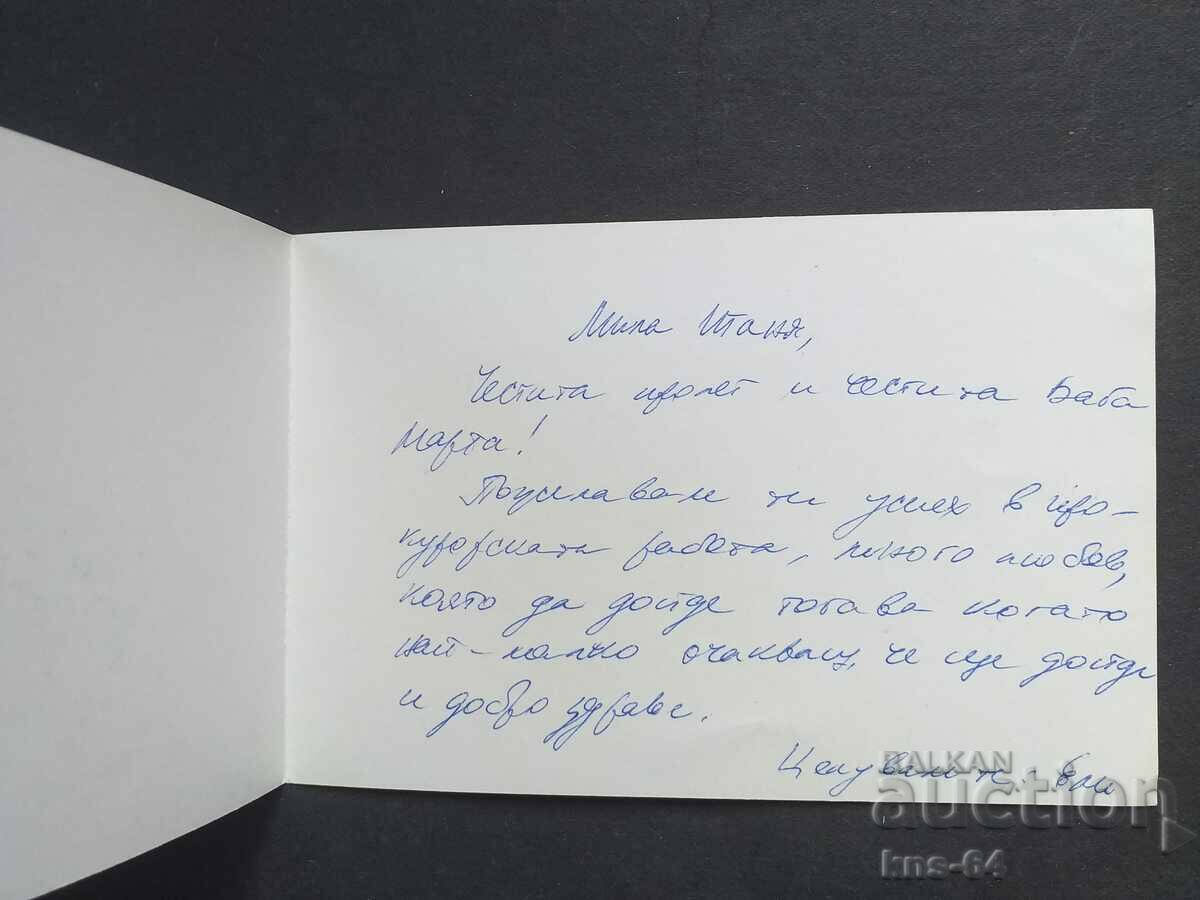 Мила Таня,
Честита пролет и честита Баба
Марта!
Пожелавам ти успех в про-
курорската работа, много любов,
която да дойде тогава когато
най-малко очакваш, че ще дойде
и добро здраве.
Целувам те: Ели
BALKAN
auction
kns-64